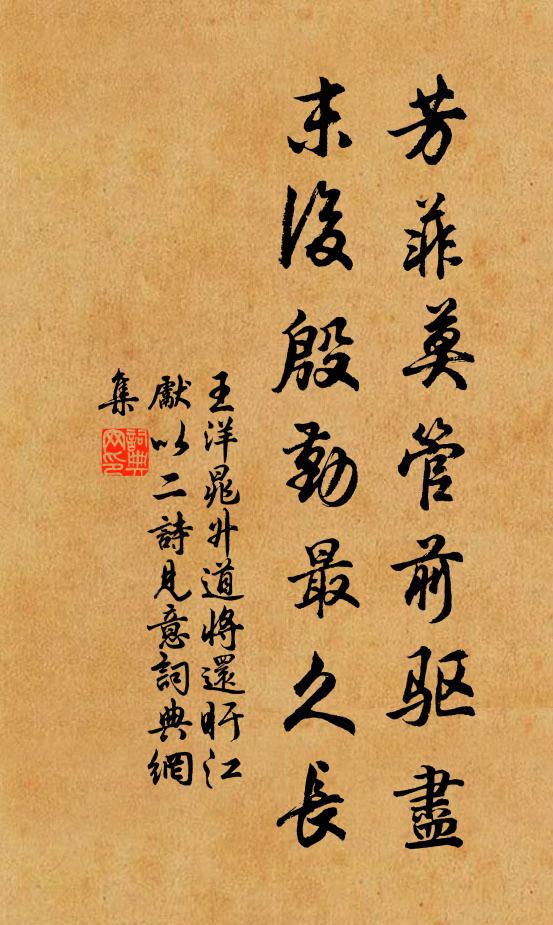 芳菲莫管前驱盡
末後殷勤最久長
王洋晁升道將還旴江
獻以二詩見意詞典網
集
詞典網印